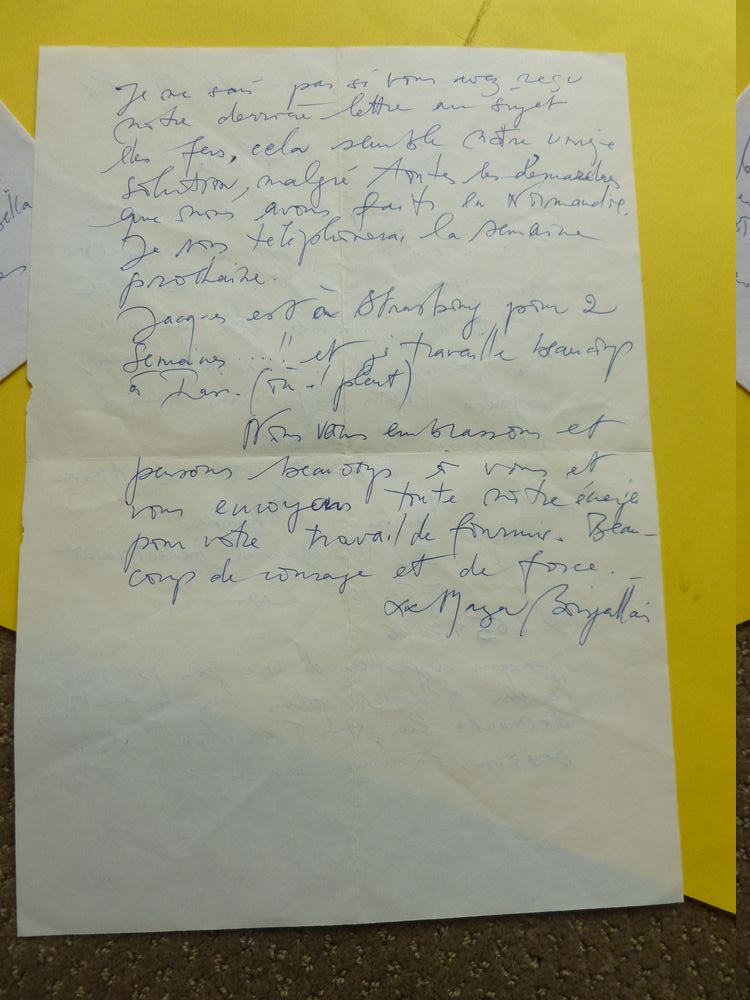 Je ne sais pas si vous avez reçu
notre dernière lettre au sujet
des fers, cela semble notre unique
solution, malgré toutes les démarches
que nous avons faits en Normandie.
Je vous téléphonerai la semaine
prochaine.
Jacques est à Strasbourg pour 2
semaines ....!! et je travaille beaucoup
à (où il pleut)
Nous vous embrassons et
pensons beaucoup à vous et
vous envoyons toute notre énergie
pour votre travail de fournir. Beau-
coup de courage et de force.